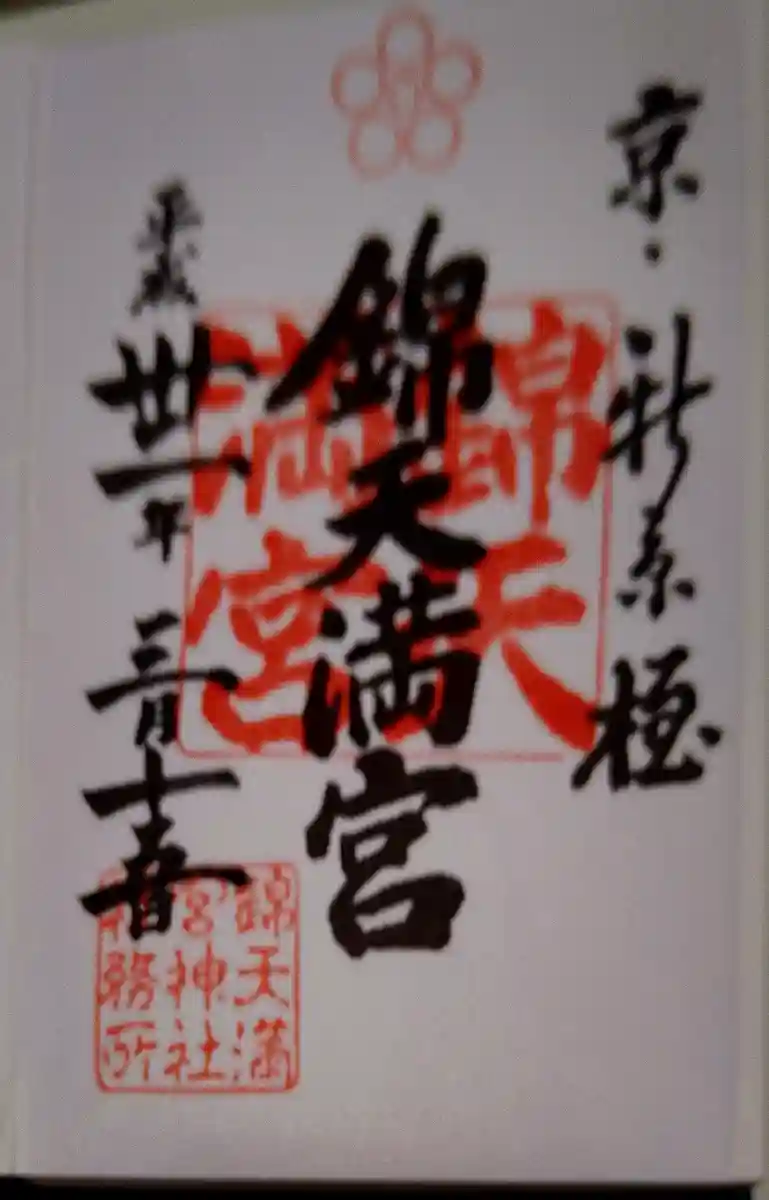 京・新京極
錦天満宮
錦天
満宮
平成卅一年三月十
錦天満
宮神社
務所